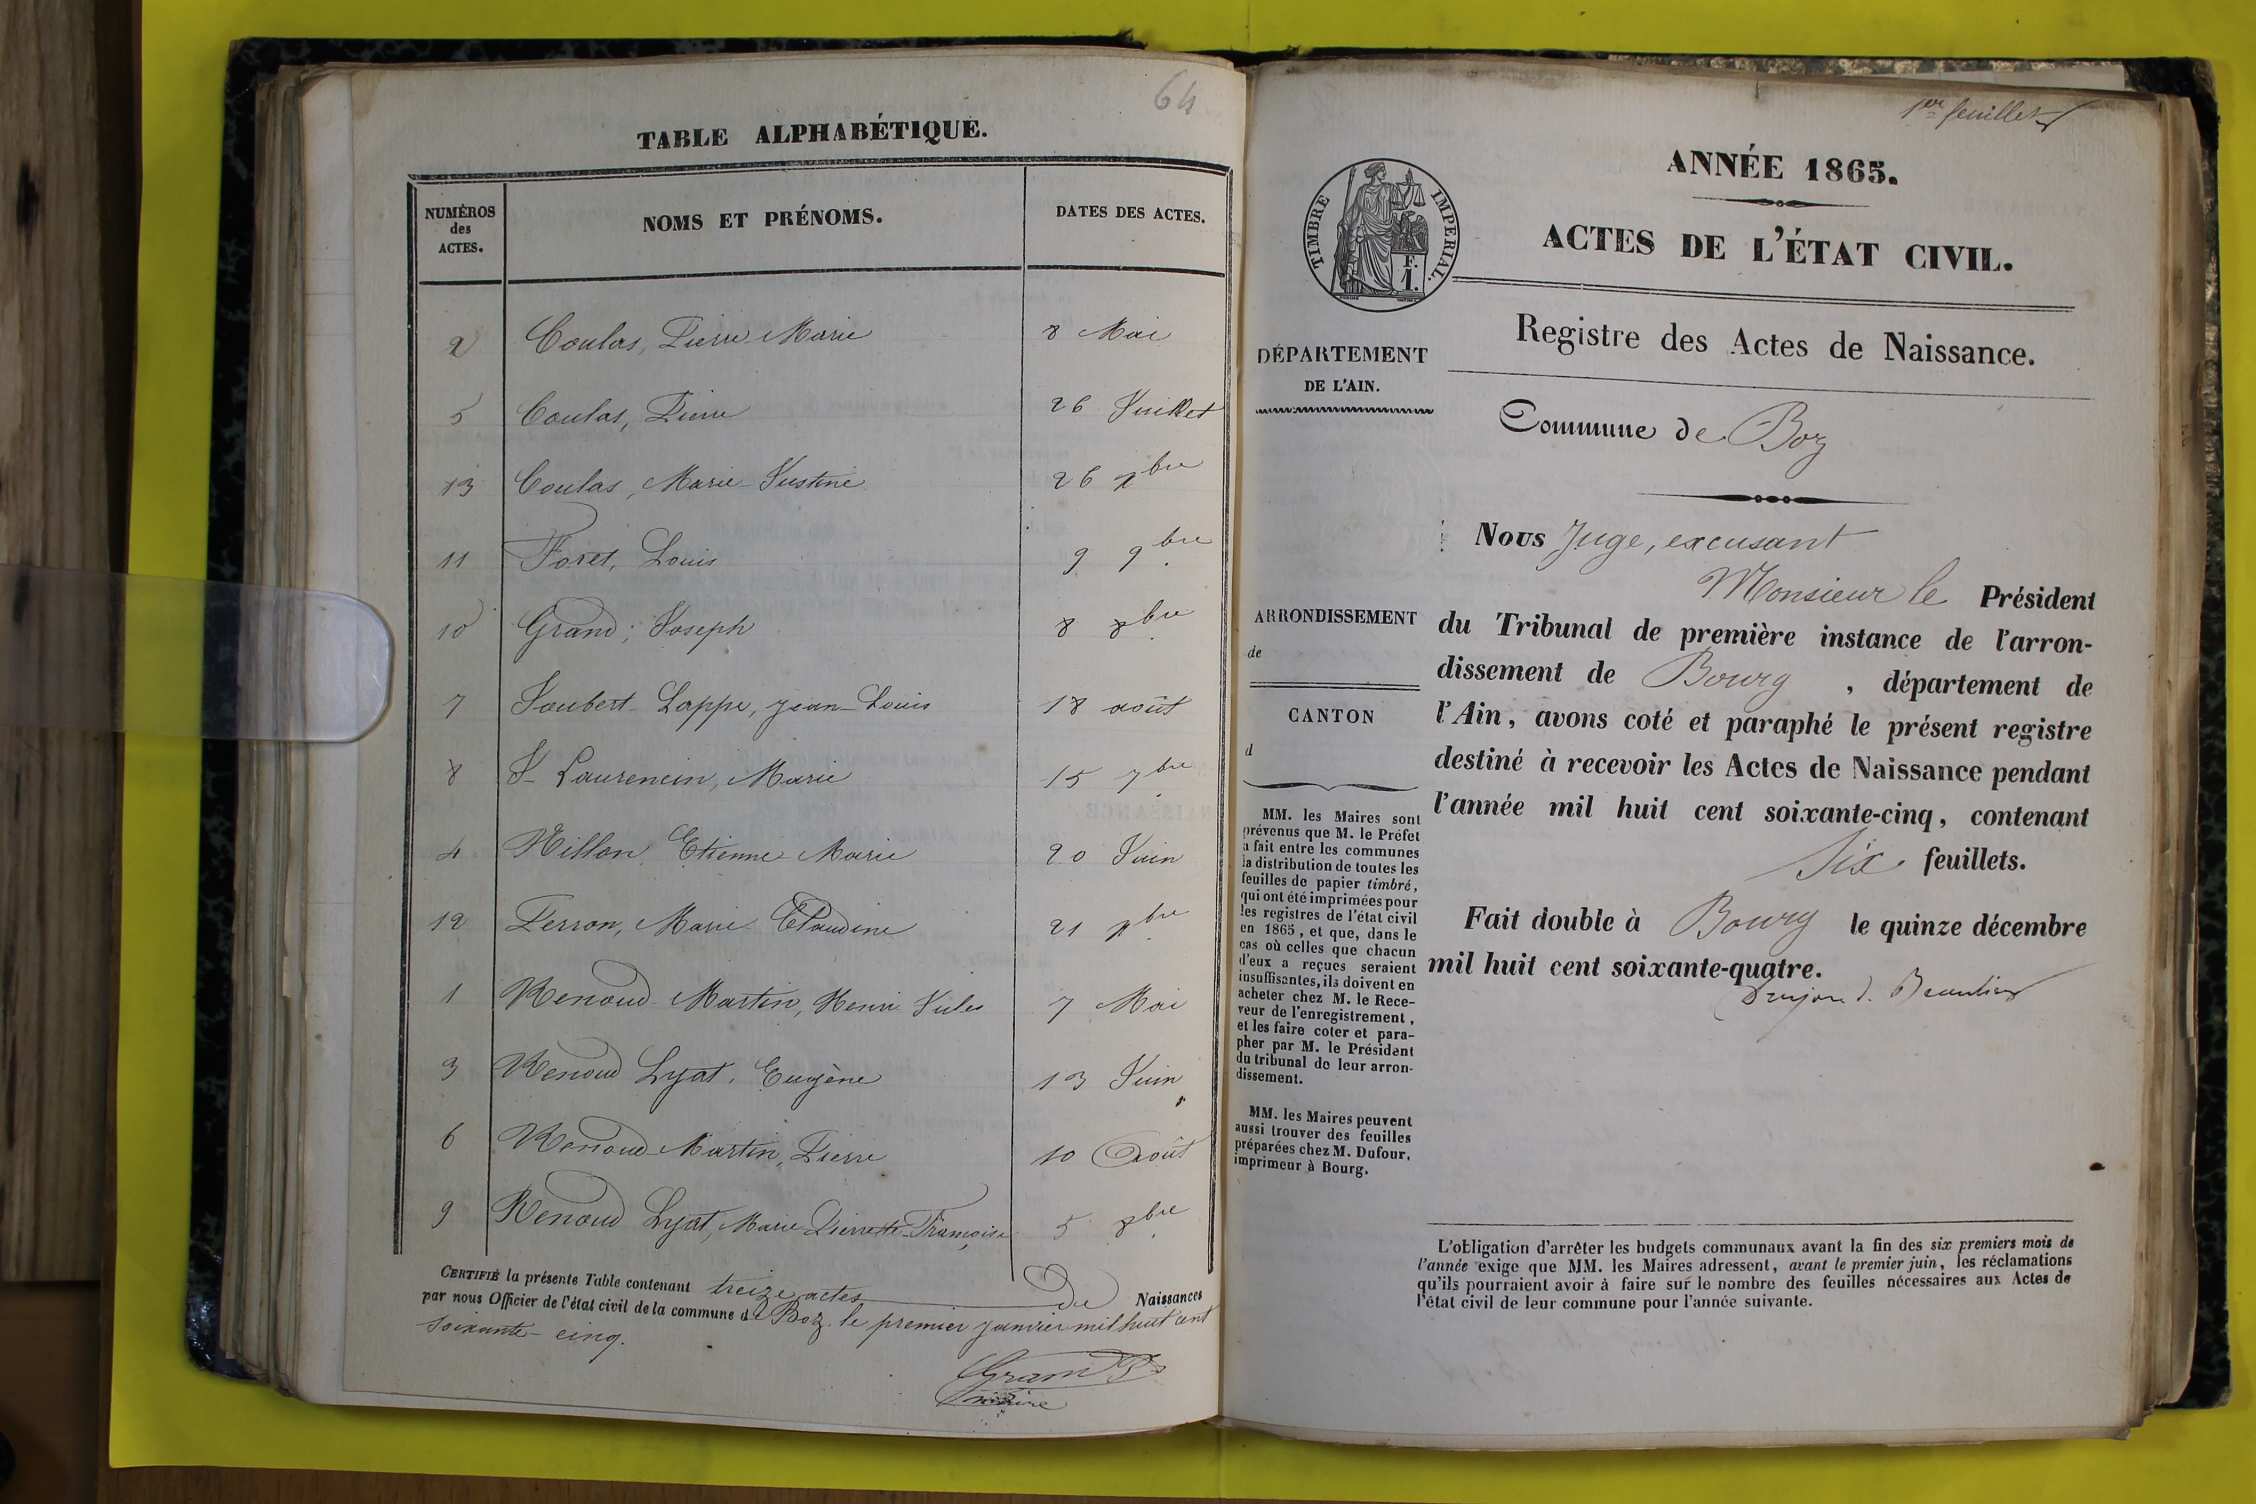 64
TABLE ALPHABÉTIQUE.
NUMÉROS
des
ACTES.
NOMS ET PRÉNOMS.
DATES DES ACTES.
2 Coulas, Pierre Marie 8 Mai
5 Coulas, Pierre 26 Juillet
13 Coulas, Marie-Justine 26 xbre
11 Foret, Louis 9 9bre
10 Grand, Joseph 8 8bre
7 Joubert-Lappe, jean-Louis 18 août
8 St Laurencin, Marie 15 7bre
4 Millon Etienne Marie 20 Juin
12 Perron, Marie Claudine 21 xbre
1 Renoud-Martin, Henri Jules 7 Mai
3 Renoud Lyat, Eugène 13 Juin
6 Renoud-Martin, Pierre 10 Août
9 Renoud Lyat, Marie-Pierrette-Françoise 5 8bre
CERTIFIÉ la présente Table contenant treize actes De Naissances
par nous Officier de l'état civil de la commune de Boz. le premier janvier mil huit cent
soixante-cinq.
Grand
maire
1er feuillet
ANNÉE 1865.
TIMBRE IMPÉRIAL.
F.
1.
ACTES DE L'ÉTAT CIVIL.
Registre des Actes de Naissance.
DÉPARTEMENT
DE L'AIN.
Commune de Boz
Nous Juge, excusant
Monsieur le Président
du Tribunal de première instance de l'arron-
dissement de Bourg , département de
l'Ain, avons coté et paraphé le présent registre
destiné à recevoir les Actes de Naissance pendant
l'année mil huit cent soixante-cinq, contenant
Six feuillets.
Fait double à Bourg le quinze décembre
mil huit cent soixante-quatre.
ARRONDISSEMENT
de
CANTON
d
MM. les Maires sont
prévenus que M. le Préfet
a fait entre les communes
la distribution de toutes les
feuilles de papier timbré,
qui ont été imprimées pour
les registres de l'état civil
en 1865, et que, dans le
cas où celles que chacun
d'eux a reçues seraient
insuffisantes, ils doivent en
acheter chez M. le Rece-
veur de l'enregistrement,
et les faire coter et para-
pher par M. le Président
du tribunal de leur arron-
dissement.
MM. les Maires peuvent
aussi trouver des feuilles
préparées chez M. Dufour,
imprimeur à Bourg.
L'obligation d'arrêter les budgets communaux avant la fin des six premiers mois de
l'année exige que MM. les Maires adressent, avant le premier juin, les réclamations
qu'ils pourraient avoir à faire sur le nombre des feuilles nécessaires aux Actes de
l'état civil de leur commune pour l'année suivante.